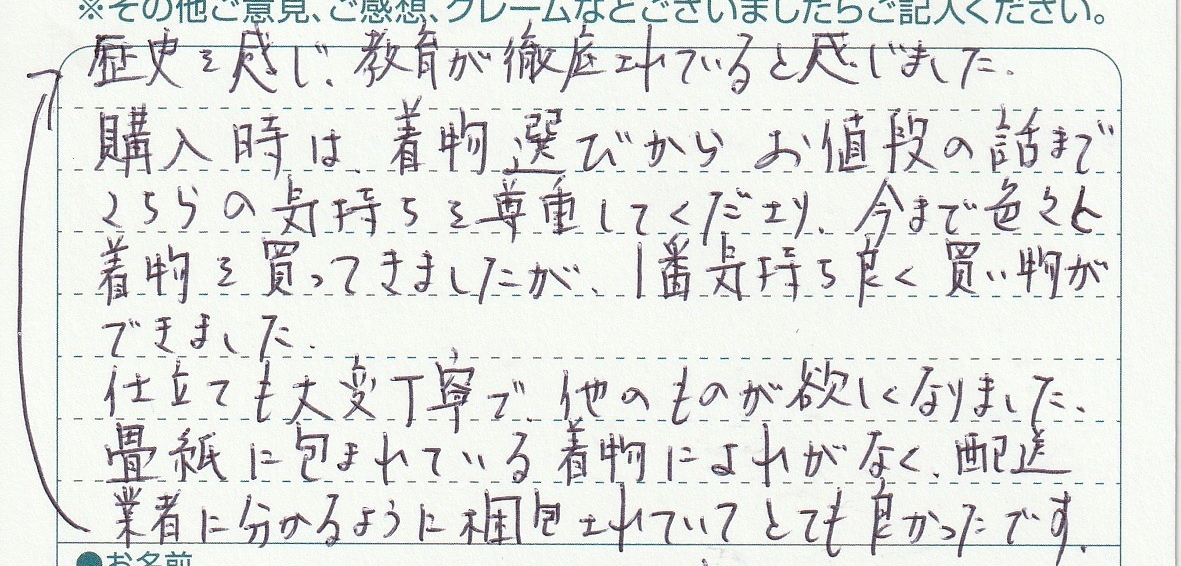 ※その他ご意見、ご感想、クレームなどございましたらご記入ください。
購入時は、着物選びから お値段の話まで
こちらの気持ちを尊重してくださり、今まで色々と
着物を買ってきましたが、1番気持ち良く買い物が
できました。
仕立ても大変丁寧で、他のものが欲しくなりました。
畳紙に包まれている着物によれがなく、配送
業者に分かるように梱包されていてとても良かったです。
歴史を感じ、教育が徹底されていると感じました。
●お名前